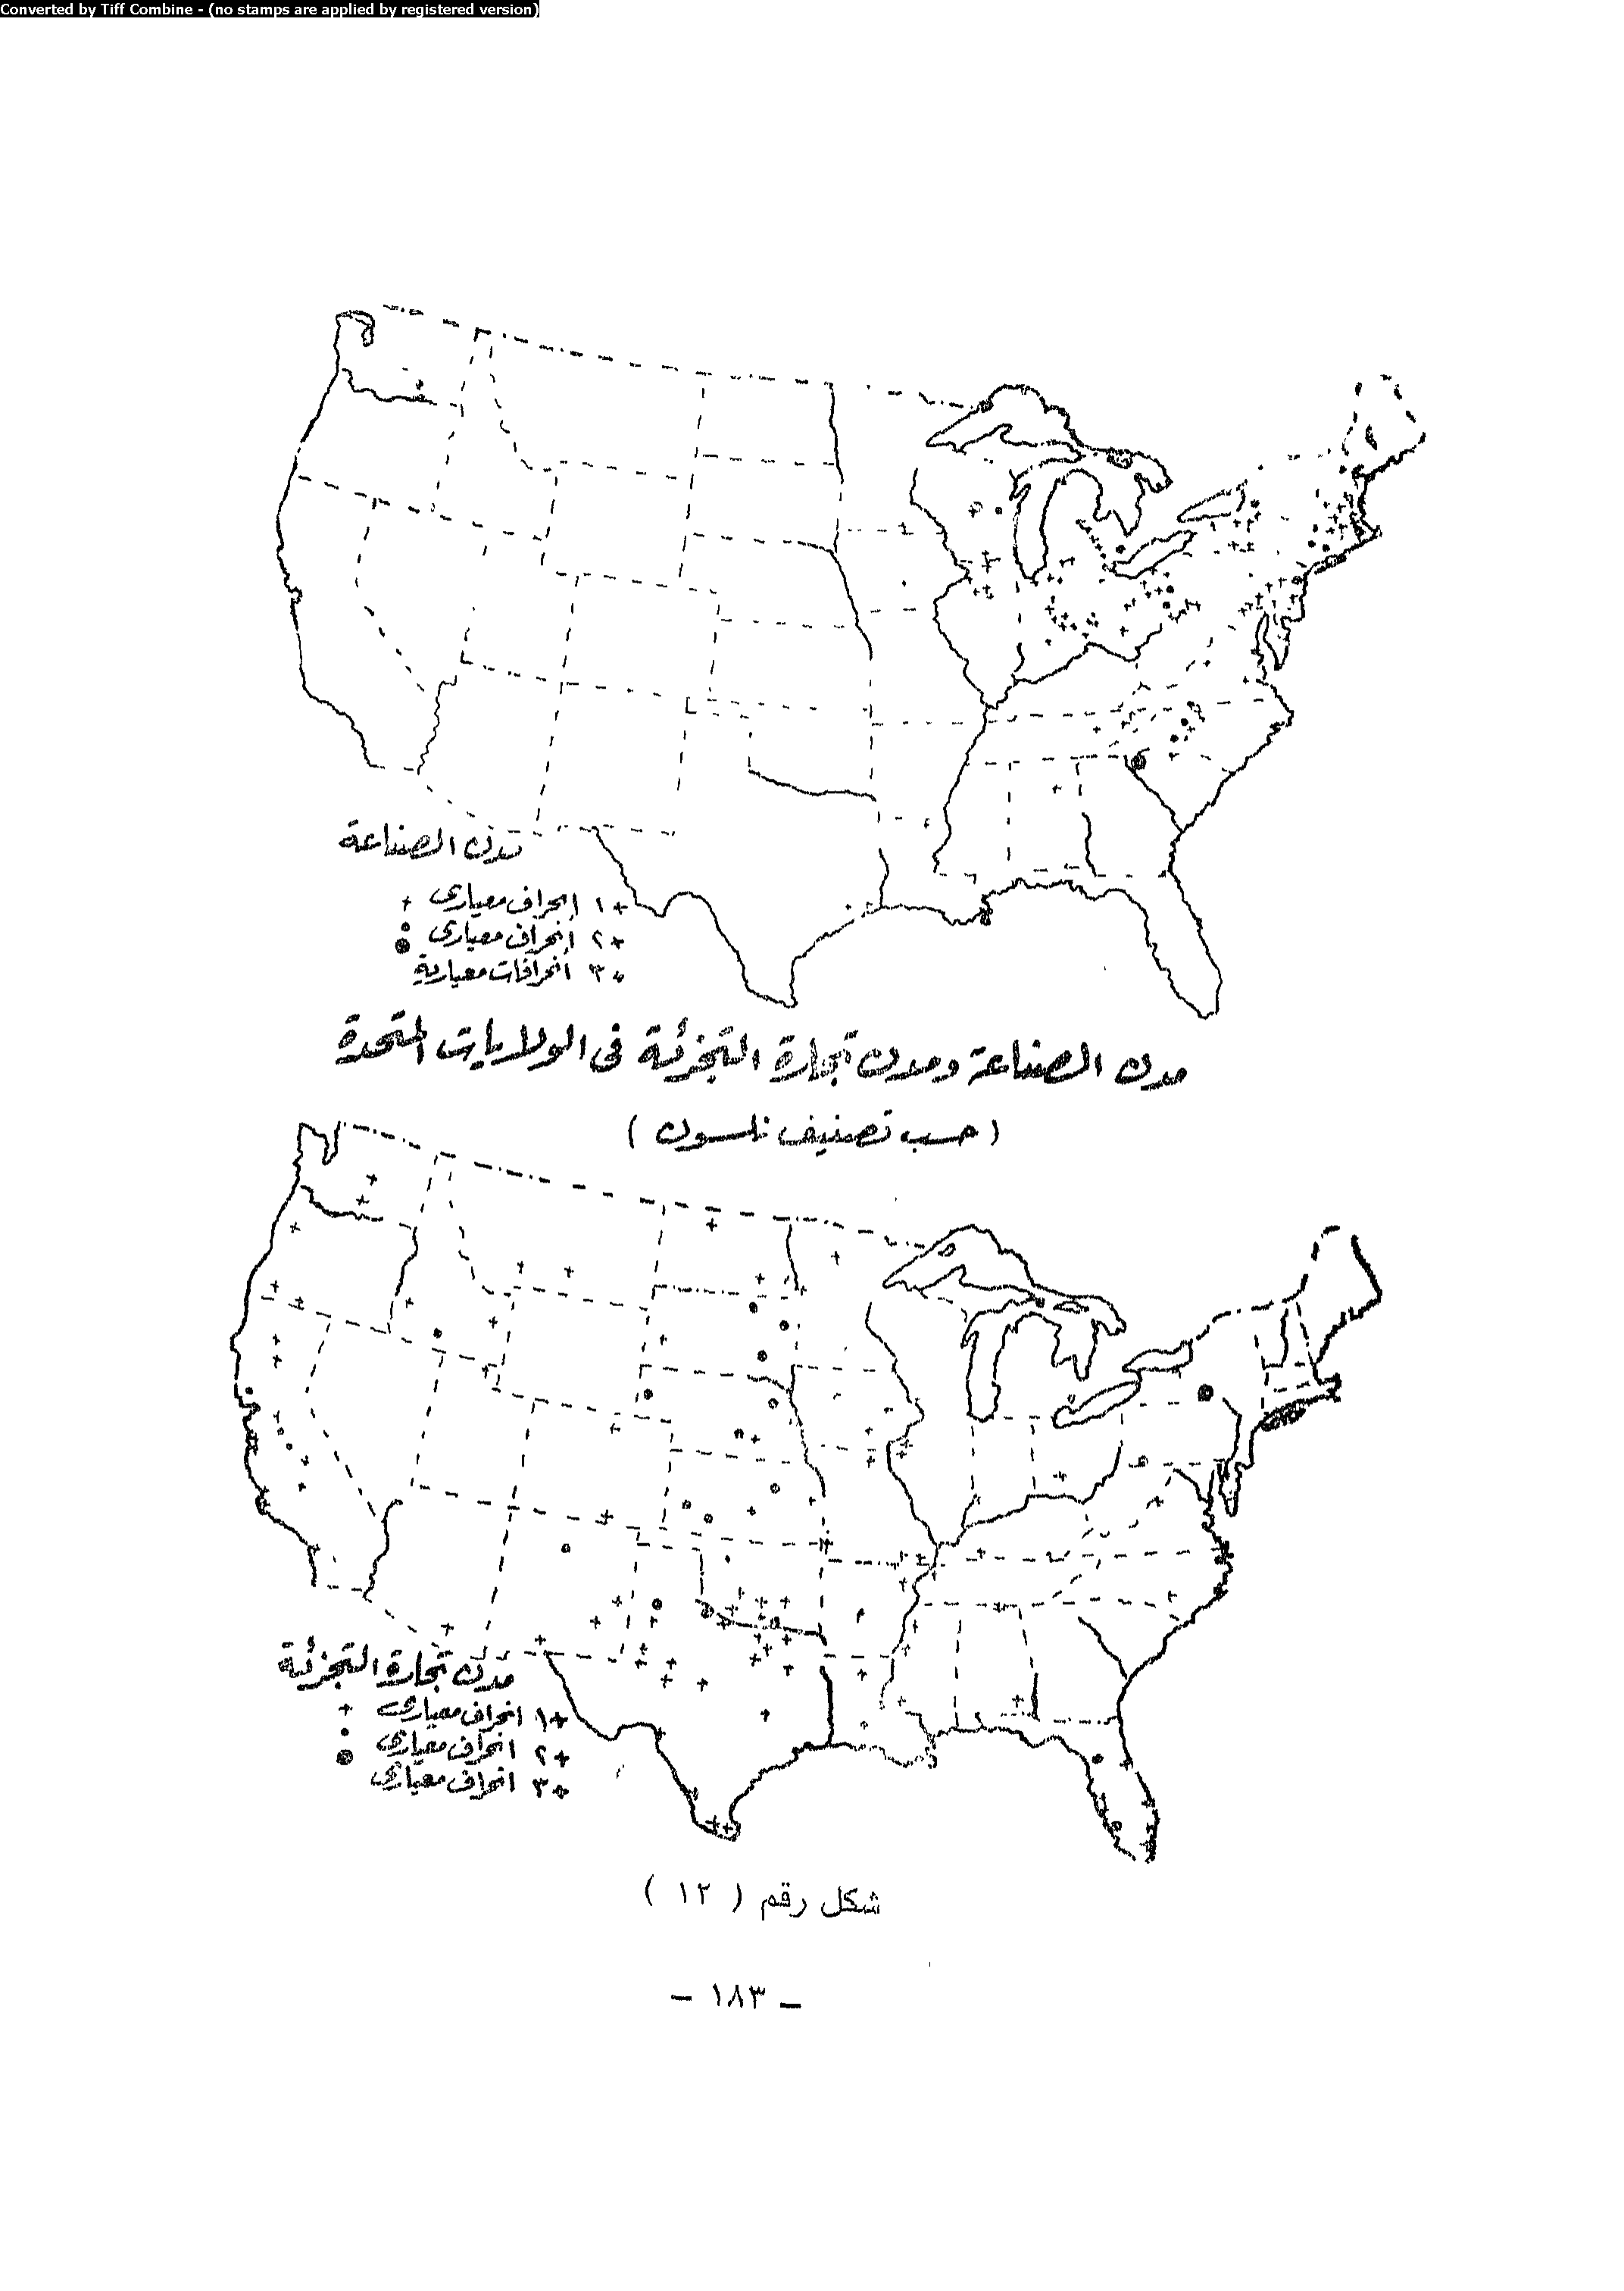 Converted by Tiff Combine - (no stamps are applied by registered version)
مدن الصناعة
+١ انحراف معيارى +
+٢ انحراف معيارى
+٣ انحرافات معيارية
مدن الصناعة ومدن تجارة التجزئة فى الولايات المتحدة
( حسب تصنيف نلسون )
مدن تجارة التجزئة
+١ انحراف معيارى +
+٢ انحراف معيارى
+٣ انحراف معيارى
شكل رقم ( ١٢ )
- ١٨٣ -